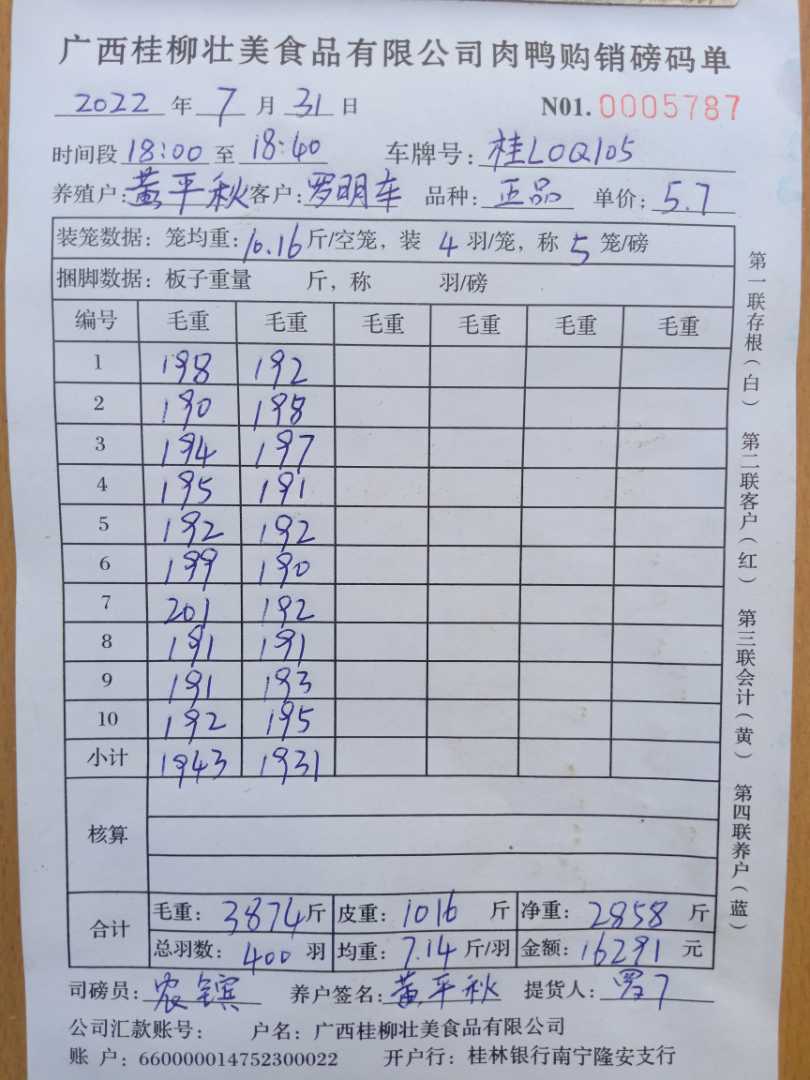 广西桂柳壮美食品有限公司肉鸭购销磅码单
2022 年 7 月 31 日 N01. 0005787
时间段 18:00 至 18:40 车牌号: 桂LOQ105
养殖户: 黄平秋 客户: 罗明车 品种: 正品 单价: 5.7
装笼数据: 笼均重: 10.16 斤/空笼, 装 4 羽/笼, 称 5 笼/磅
捆脚数据: 板子重量 斤, 称 羽/磅
编号 毛重 毛重 毛重 毛重 毛重 毛重
1 198 192
2 190 198
3 194 197
4 195 191
5 192 192
6 199 190
7 201 192
8 191 191
9 191 193
10 192 195
小计 1943 1931
核算
合计 毛重: 3874 斤 皮重: 1016 斤 净重: 2858 斤
总羽数: 400 羽 均重: 7.14 斤/羽 金额: 16291 元
司磅员: 农镔 养户签名: 黄平秋 提货人: 罗
公司汇款账号: 户名: 广西桂柳壮美食品有限公司
账 户: 660000014752300022 开户行: 桂林银行南宁隆安支行
第一联存根(白) 第二联客户(红) 第三联会计(黄) 第四联养户(蓝)